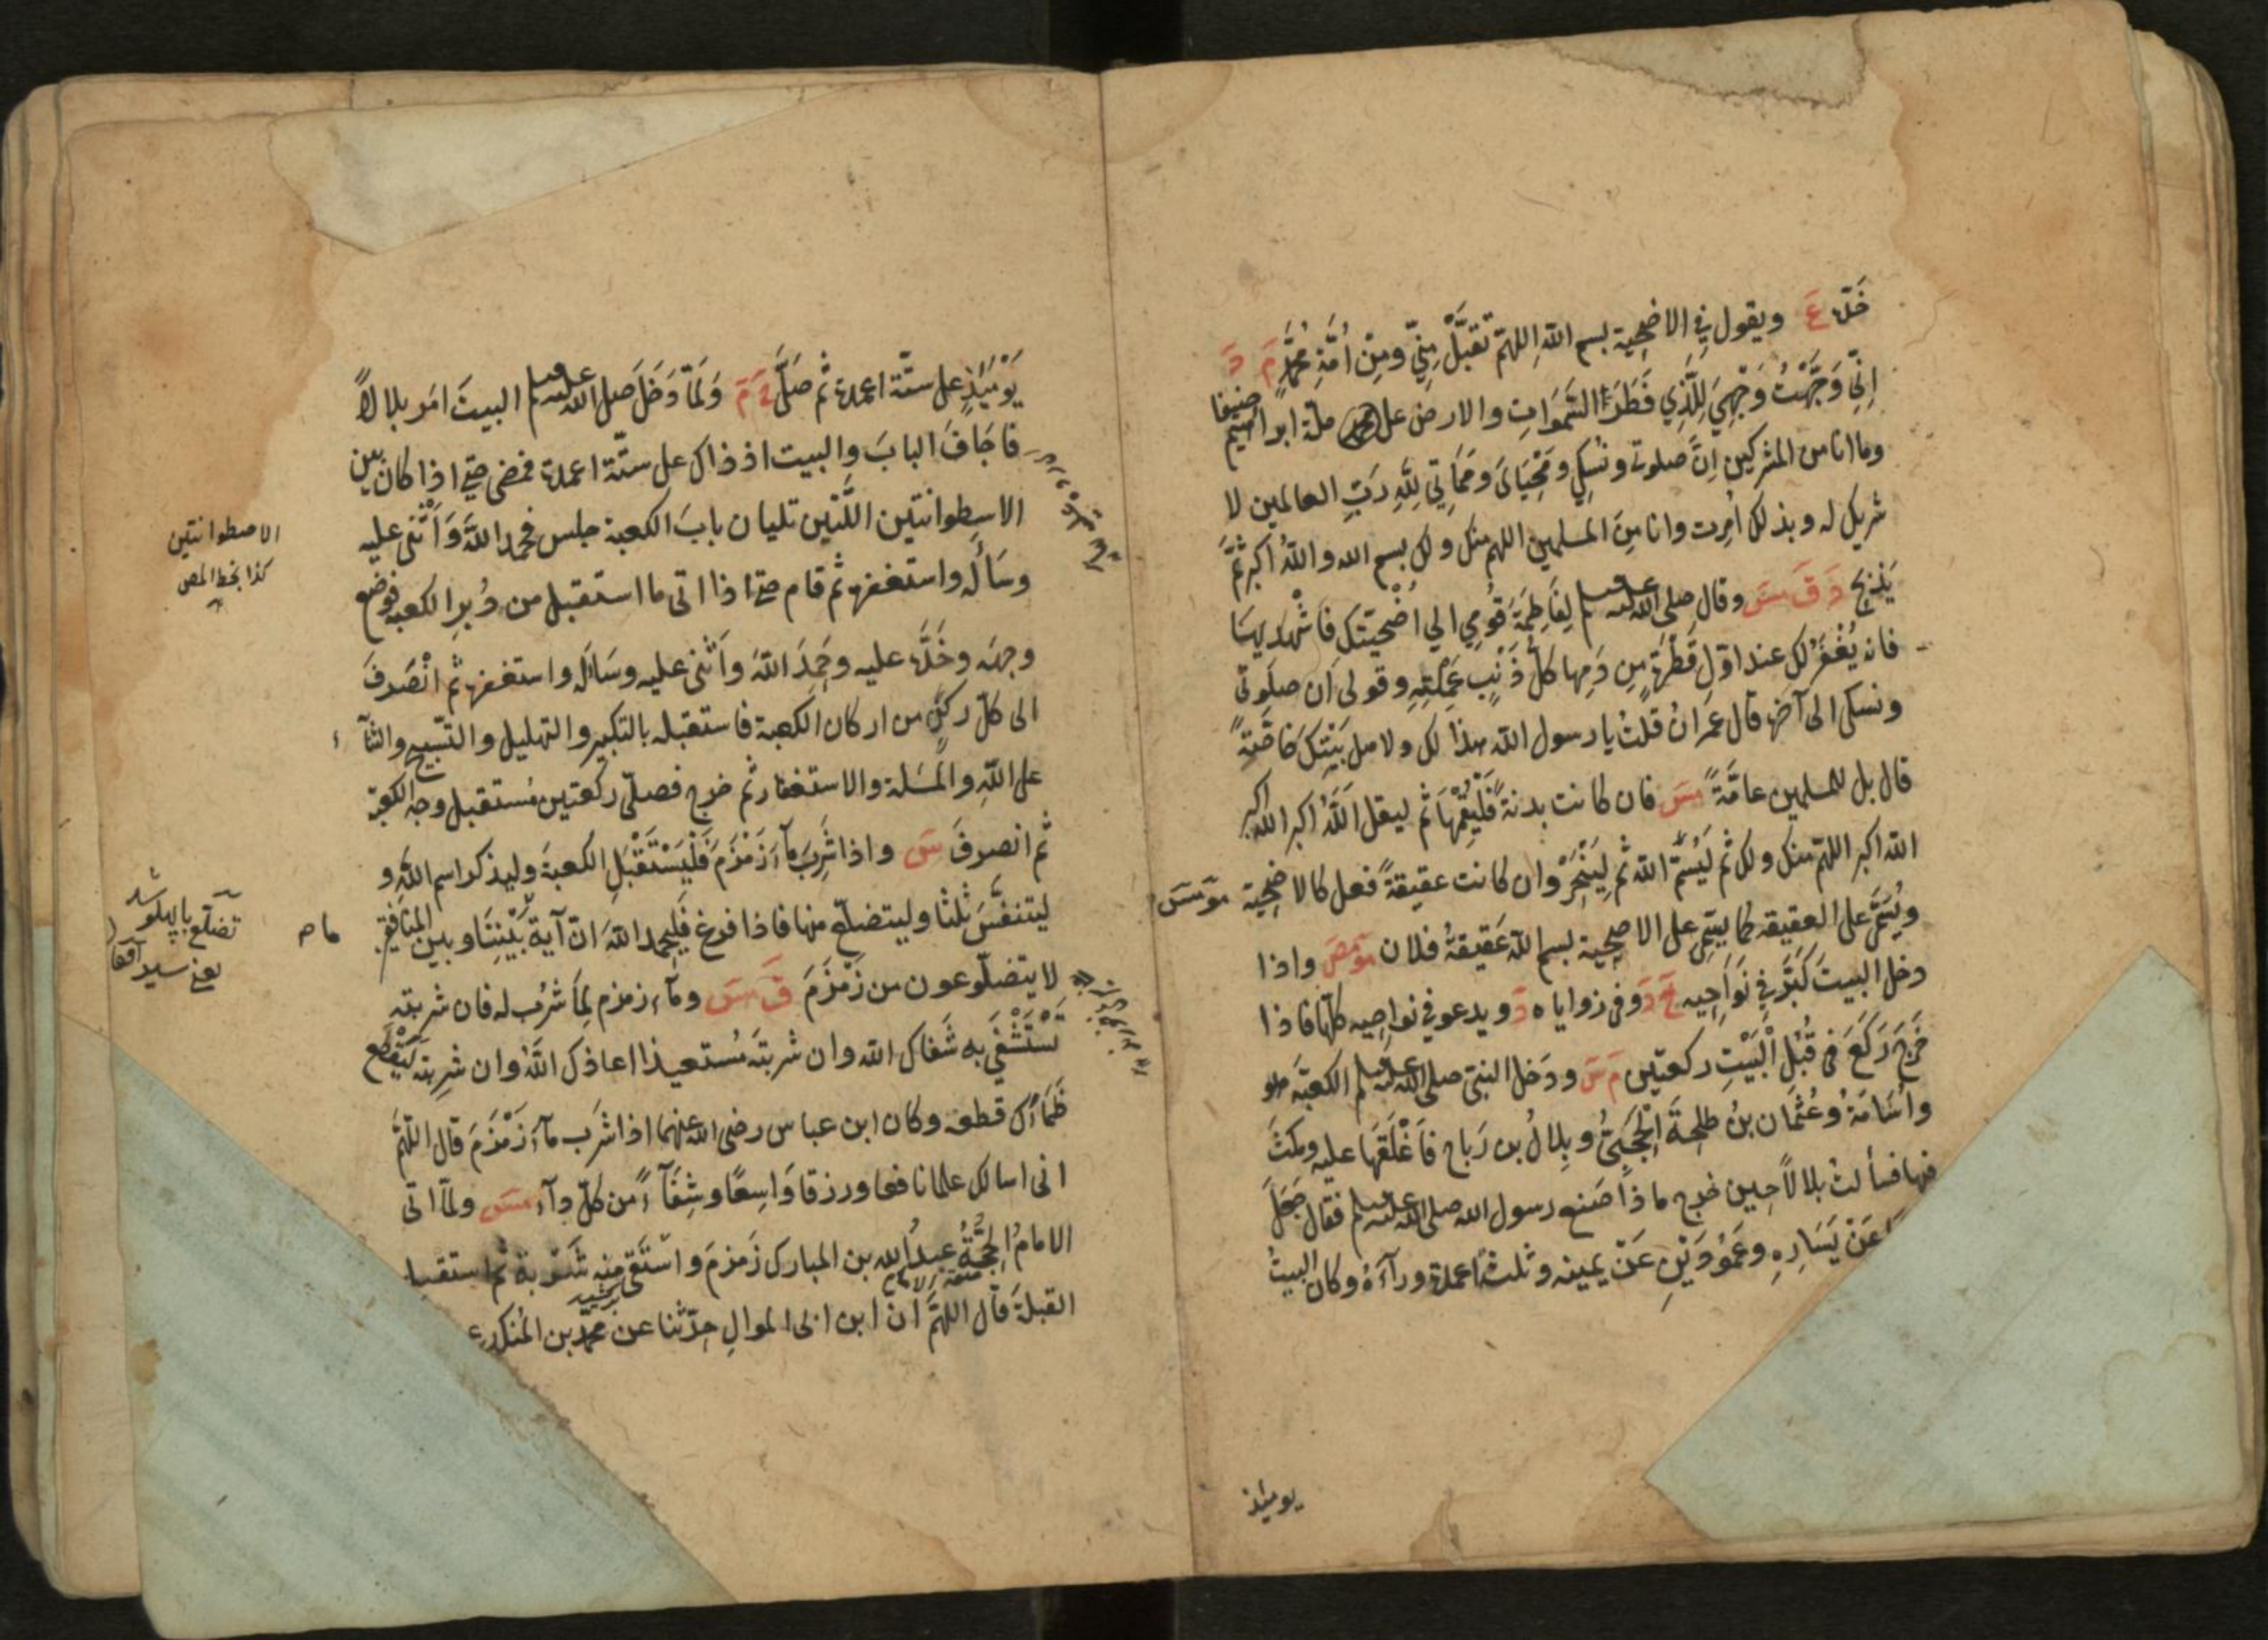 خَدّه عَ ويقول في الاضحية بسم الله اللهم تَقَبَّلْ مِنّي ومِن اُمَّةِ مُحَمَّدٍ مَ دَ
اِنّي وَجَّهْتُ وَجْهِيَ لِلَّذِي فَطَرَ السَّمَوَاتِ والارض على ملة ابراهيم حنيفا
وما انا من المشركين اِنَّ صلوتي ونُسُكي ومَحْيَايَ ومَمَاتي لِلّهِ رَبِّ العالمين لا
شريك له وبذلك اُمِرت وانا مِنَ المسلمين اللهم منك ولك بسم الله واللهُ اكبر ثُمَّ
يَذْبَح دَ قَ مسَ وقال صلى الله عليه وسلم لِفَاطِمَةَ قُومِي الي اُضْحيتكِ فَاشْهَديهَا
فانه يُغْفَرُ لكِ عند اوّلِ قَطْرَةٍ مِن دَمِها كلُّ ذَنْبٍ عَمِلْتِيهِ وقولى اَن صلَوتى
ونسكى الى آخره قال عمرانُ قلتُ يا رسول الله هذا لك ولاهل بَيْتِكَ خَاصَّةً
قال بل للمسلمين عامَّةً مسَ فان كانت بدنةً فَلْيُقِمْهَا ثم ليقل اللَّهُ اكبر الله اكبر
الله اكبر اللهمّ منك ولك ثم لَيُسَمِّ الله ثم لِيَنْحَرْ وان كانت عقيقةً فعل كالاضحية مو مسَ
ويُسَمّى على العقيقه كما يسمّى على الاضحية بسم الله عَقيقةُ فلان مو مصَ واذا
دخل البيتَ كَبَّرَ في نَوَاحِيه خَ دَ وفى زواياه دَ ويدعو في نواحيه كلّها فاذا
خَرَجَ رَكَعَ فى قُبُلِ الْبَيْتِ ركعتين مَ سَ ودخل النبيّ صلى الله عليه وسلم الكعبةَ هو
واُسَامَةُ وعُثْمَان بنُ طلحةَ الْحَجَبِيُّ وبِلالُ بن رَبَاح فَاَغْلَقَهَا عليه ومكثَ
فيها فسألتُ بلالاً حِين خرج ماذا صَنع رسول الله صلى الله عليه وسلم فقال جَعَلَ
عَنْ يَسَارِهِ وعَمُودَيْنِ عَنْ يمينه وثلثةَ اعمدة ورآءَهُ وكان البيتُ
يومئذ
يَوْمَئِذٍ على ستّة اعمدة ثم صَلَّى خَ مَ وَلَمّا دَخَلَ صلى الله عليه وسلم البيتَ امَر بلالاً
فَاَجَافَ البابَ والبيت اذ ذاك على ستّة اعمدة فمضى حتى اذا كان بين
الاسطوانتين اللَّتَين تليان بابَ الكعبة جلس فحمد اللهَ وَاَثْنَى عليه
وسَأَله واستغفره ثم قام حتى اذا اتى ما استقبل من دُبرِ الكعبة فوضع
وجهَه وخَدَّه عليه وحَمِدَ اللهَ واَثنى عليه وسَأله واستغفره ثم انْصَرفَ
الى كلّ ركنٍ من اركان الكعبة فاستقبله بالتكبير والتهليل والتسبيح والثنآء
على اللهِ والمسَئلة والاستغفار ثم خرج فصلّى ركعتين مُستقبل وجه الكعبة
ثم انصرفَ سَ واذا شَرِبَ مآءَ زَمْزَمَ فَلْيَسْتَقْبَلِ الكعبةَ وليذكر اسم اللهِ و
ليتنفَّسَ ثلثا وليتضلّع منها فاذا فرغ فَلْيحمد اللهَ انّ آيةَ بَيْنِنَا وبين المنافقين
لا يتضلّوعون من زَمْزَمَ قَ مسَ ومآء زمزم لِمَا شُرِبَ له فان شربته
تَسْتَشْفِي به شَفاك الله وان شربتَه مُستعيذا اعاذك اللهُ وان شَرِبتَه لِيَقْطَع
ظَمَأَك قطعه وكان ابن عباس رضى الله عنهما اذا شَرِب مآءَ زَمْزَمَ قال اللّهمَّ
انى اسالك علما نافعا ورزقا وَاسِعًا وشِفَآءً من كلّ دآء مسَ ولمّا اتى
الامامُ الحُجَّةُ عبدُ الله بن المبارك زَمزمَ واسْتَقى منه شَرْبة ثم استقبل
القبلةَ قال اللهمَّ ان ابن ابى الموالِ حدّثنا عن محمد بن المُنكدر
الاصطوانتين
كذا بخط المص
تضلّع